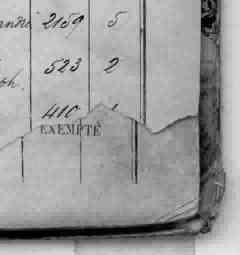 andré 2159 5
523 2
ph.
410
EXEMPTÉ